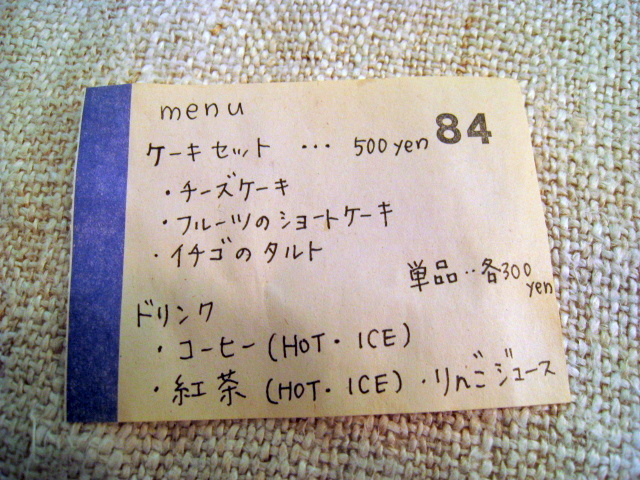 menu
84
ケーキセット … 500yen
・チーズケーキ
・フルーツのショートケーキ
・イチゴのタルト
単品‥各300yen
ドリンク
・コーヒー(HOT・ICE)
・紅茶(HOT・ICE)・りんごジュース